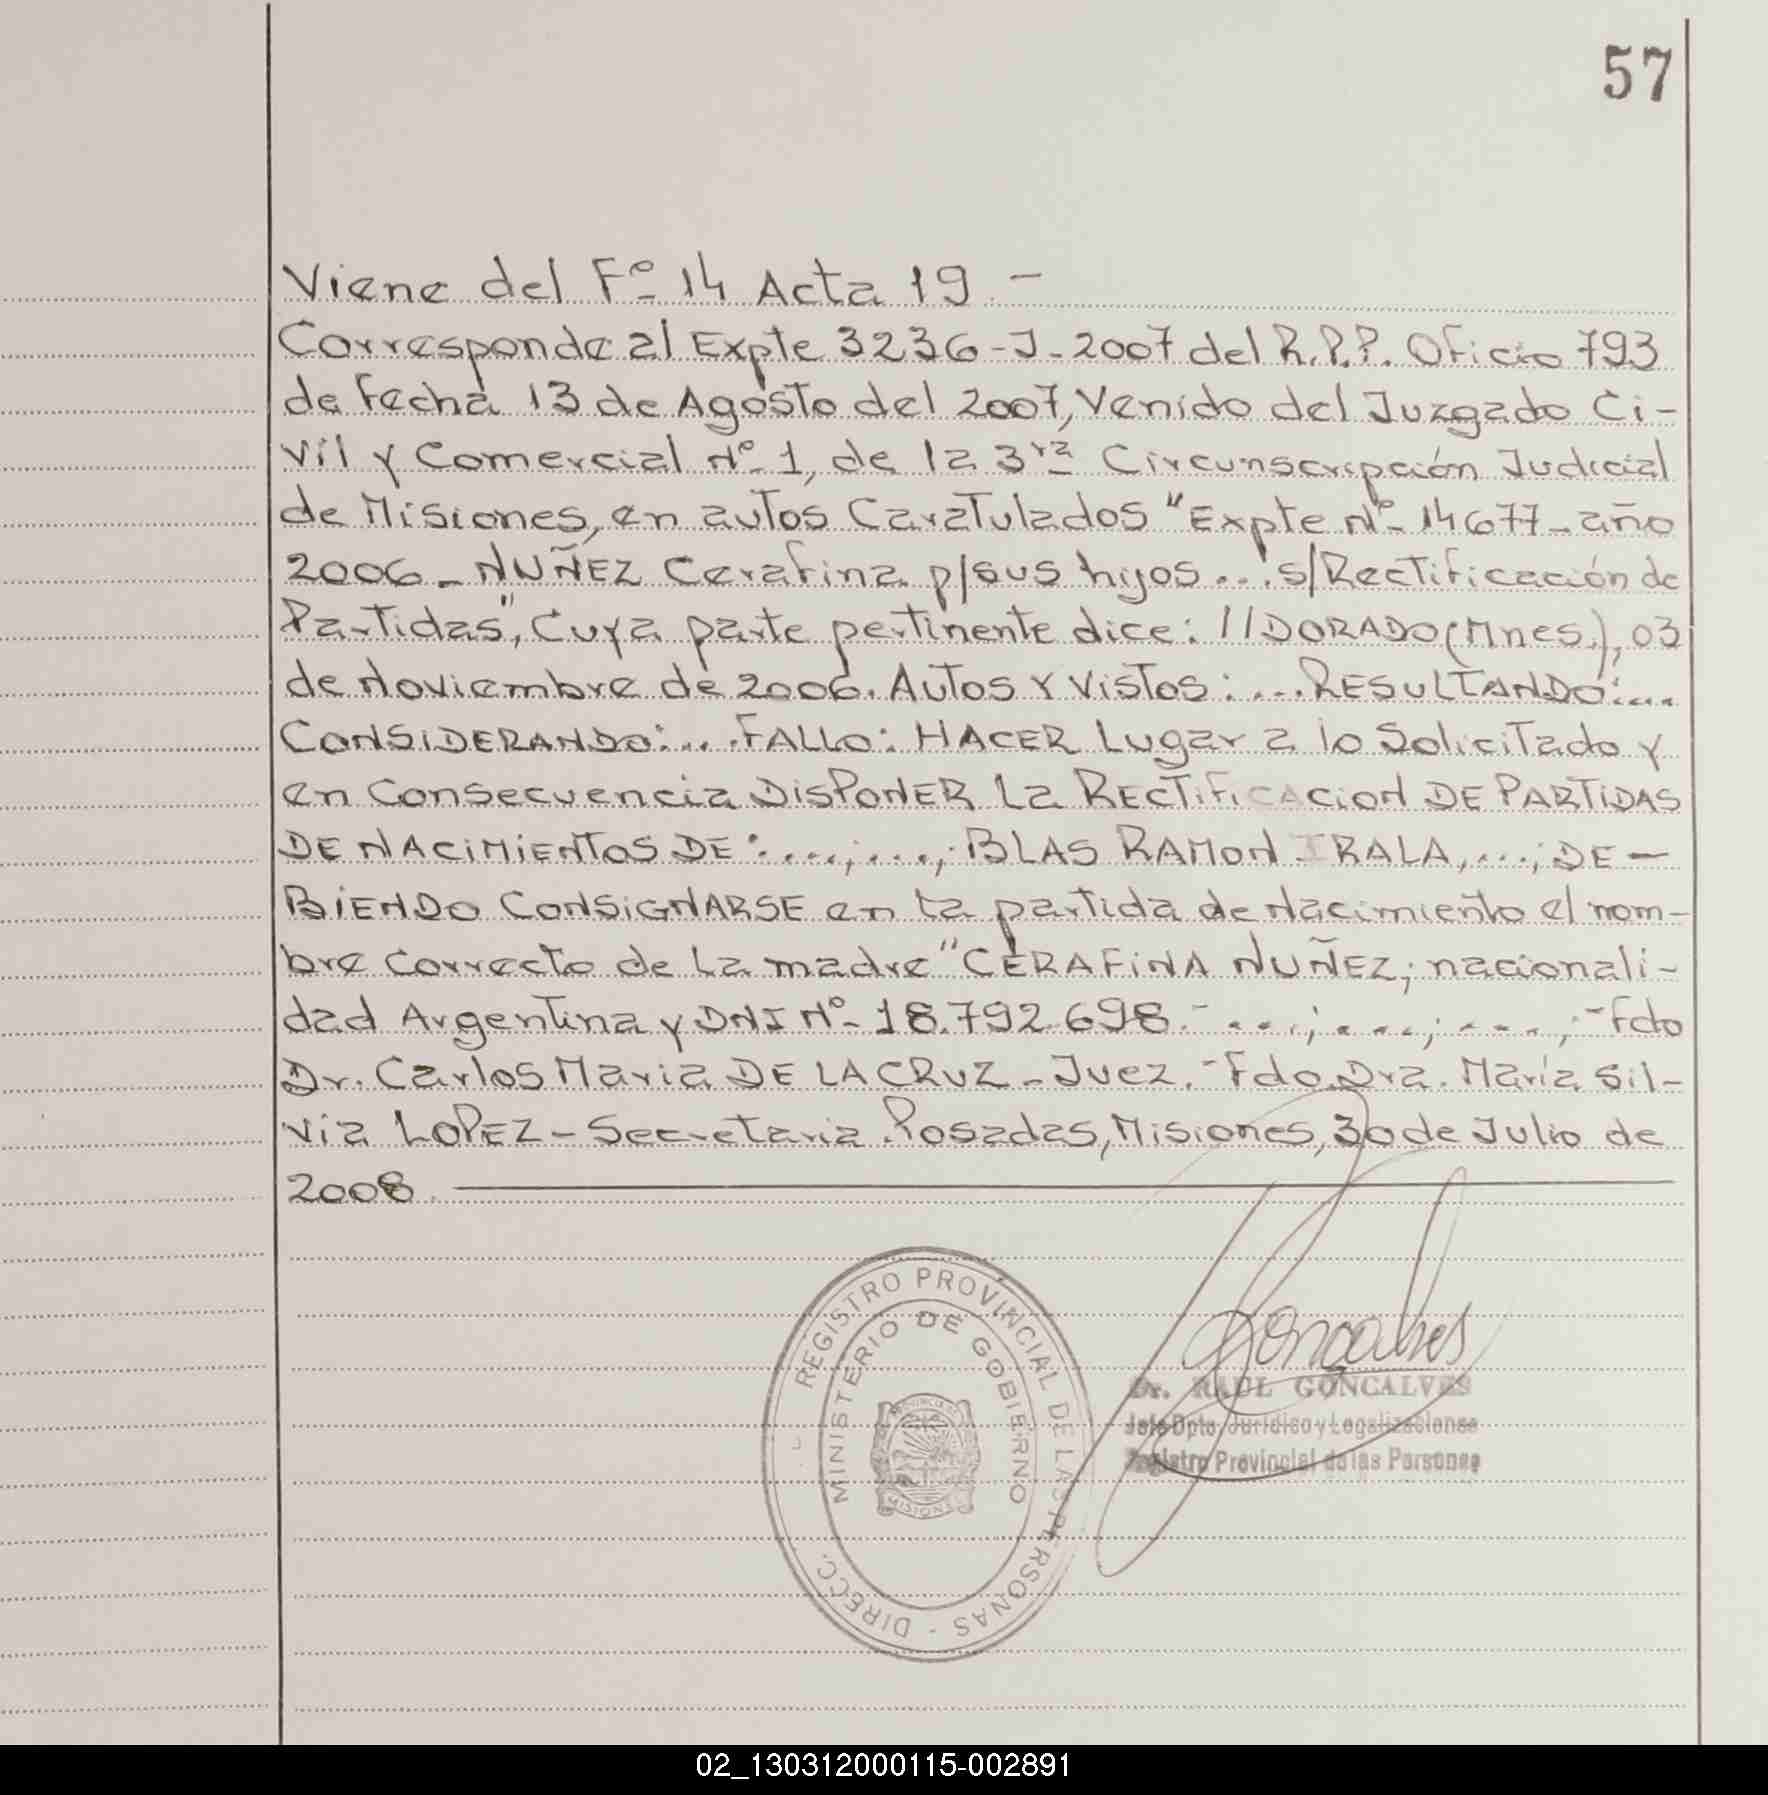 57
Viene del Fº 14 Acta 19 -
Corresponde al Expte 3236-J-2007 del R.P.P. Oficio 793
de fecha 13 de Agosto del 2007, Venido del Juzgado Ci-
vil y Comercial Nº 1, de la 3ra Circunscripción Judicial
de Misiones, en autos Caratulados "Expte Nº 14677-año
2006-NUÑEZ Cerafina p/sus hijos...s/Rectificación de
Partidas", Cuya parte pertinente dice: //DORADO (Mnes.), 03
de Noviembre de 2006. Autos Y Vistos:...RESULTANDO:...
CONSIDERANDO:...FALLO: HACER Lugar a lo Solicitado y
en Consecuencia DISPONER La RECTIFICACION DE PARTIDAS
DE NACIMIENTOS DE:...;...; BLAS RAMON IRALA,...; DE-
BIENDO CONSIGNARSE en la partida de Nacimiento el nom-
bre correcto de La madre "CERAFINA NUÑEZ; nacionali-
dad Argentina y DNI Nº 18.792.698.-...;...;...;-Fdo
Dr. Carlos Maria DE LA CRUZ-Juez.-Fdo. Dra. María Sil-
via LOPEZ-Secretaria. Posadas, Misiones, 30 de Julio de
2008.
DIRECC. REGISTRO PROVINCIAL DE LAS PERSONAS -
MINISTERIO DE GOBIERNO
PROVINCIA DE
MISIONES
Goncalves
Dr. RAUL GONCALVES
Jefe Dpto. Jurídico y Legalizaciones
Registro Provincial de las Personas
02_130312000115-002891